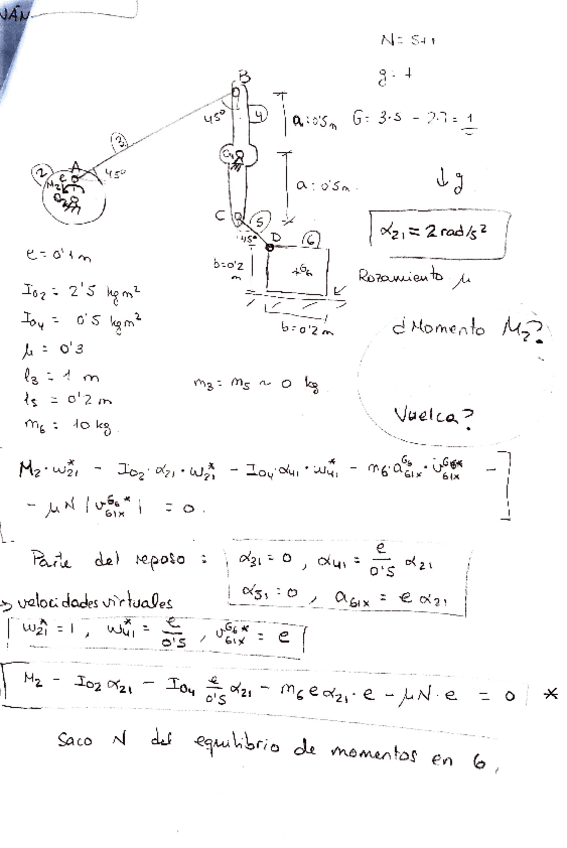 N = 5+1
g: 1
G= 3·5 - 2·7 = 1
B
45º
4
a: 0'5m
3
2
A
e
M2
O2
45º
O4
a: 0'5m.
↓g
C
5
D
6
45º
α21 = 2 rad/s²
b=0'2 m
+G6
Rozamiento μ
b=0'2 m
e = 0'1 m
I02 = 2'5 kgm²
I04 = 0'5 kgm²
μ = 0'3
l3 = 1 m
l5 = 0'2 m
m6 = 10 kg
m3 = m5 ~ 0 kg.
¿Momento M2?
Vuelca?
M2·ω21* - I02·α21·ω21* - I04·α41·ω41* - m6·a61x^G6·v61x^G6* -
- μN |v61x^G6*| = 0.
Parte del reposo : α31 = 0 , α41 = e/0'5 α21
α51 = 0 , a61x = e α21
→ velocidades virtuales
ω21* = 1 , ω41* = e/0'5 , v61x^G6* = e
M2 - I02 α21 - I04 e/0'5 α21 - m6 e α21 · e - μN·e = 0 *
Saco N del equilibrio de momentos en 6.